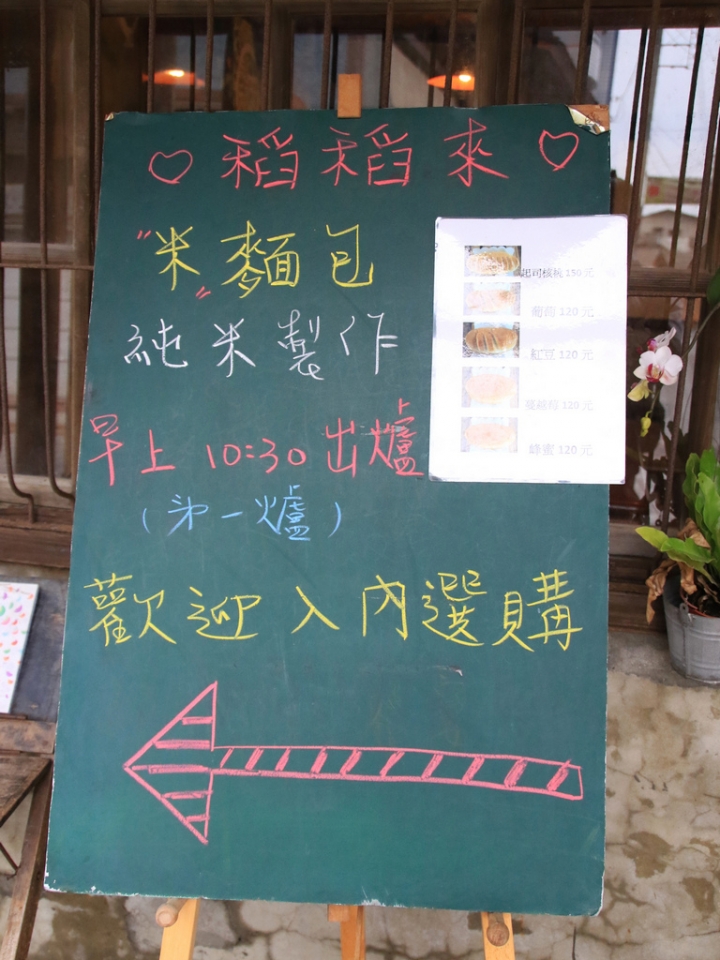 ♡ 稻稻來 ♡
"米"麵包
純米製作
早上 10:30 出爐
(第一爐)
歡迎入內選購
起司核桃 150元
葡萄 120元
紅豆 120元
蔓越莓 120元
蜂蜜 120元